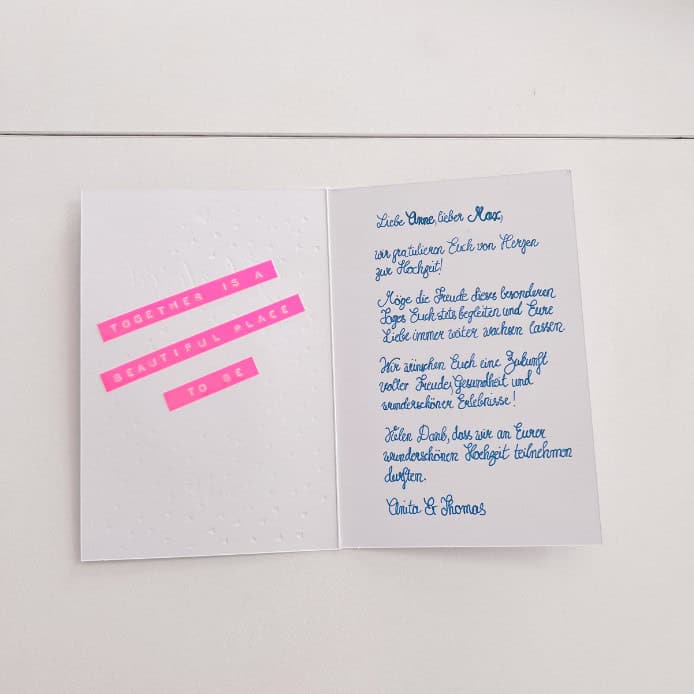 TOGETHER IS A
BEAUTIFUL PLACE
TO BE
Liebe Anne, lieber Max,
wir gratulieren Euch von Herzen
zur Hochzeit!
Möge die Freude dieses besonderen
Tages Euch stets begleiten und Eure
Liebe immer weiter wachsen lassen
Wir wünschen Euch eine Zukunft
voller Freude, Gesundheit und
wunderschöner Erlebnisse!
Vielen Dank, dass wir an Eurer
wunderschönen Hochzeit teilnehmen
durften.
Anita & Thomas